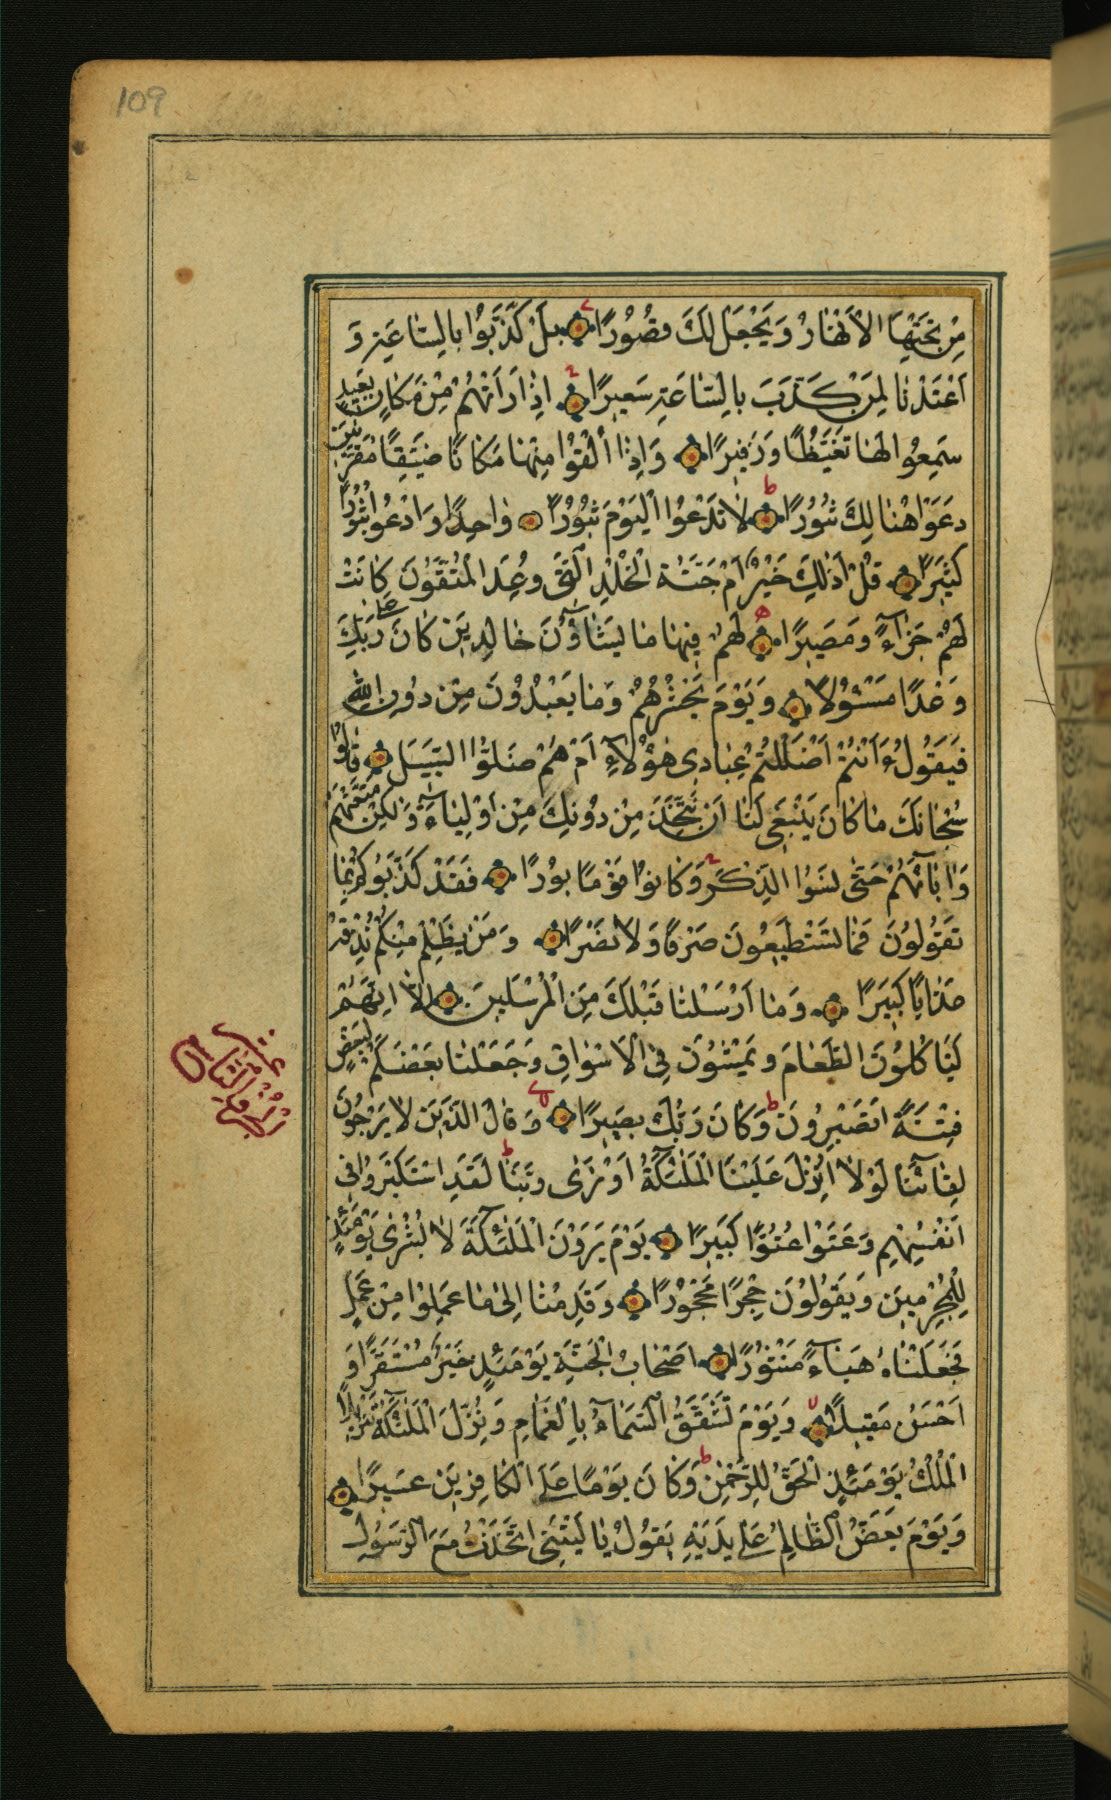 109
مِنْ تَحْتِهَا الْاَنْهٰارُ وَيَجْعَلْ لَكَ قُصُورًا بَلْ كَذَّبُوا بِالسّٰاعَةِ وَ
اَعْتَدْنٰا لِمَنْ كَذَّبَ بِالسّٰاعَةِ سَعِيرًا اِذٰا رَاَتْهُمْ مِنْ مَكٰانٍ بَعِيدٍ
سَمِعُوا لَهٰا تَغَيُّظًا وَزَفِيرًا وَاِذٰا اُلْقُوا مِنْهٰا مَكٰانًا ضَيِّقًا مُقَرَّنِينَ
دَعَوْا هُنٰالِكَ ثُبُورًا لٰا تَدْعُوا الْيَوْمَ ثُبُورًا وٰاحِدًا وَادْعُوا ثُبُورًا
كَثِيرًا قُلْ اَذٰلِكَ خَيْرٌ اَمْ جَنَّةُ الْخُلْدِ الَّتِى وُعِدَ الْمُتَّقُونَ كٰانَتْ
لَهُمْ جَزٰآءً وَمَصِيرًا لَهُمْ فِيهٰا مٰا يَشٰآؤُنَ خٰالِدِينَ كٰانَ عَلٰى رَبِّكَ
وَعْدًا مَسْئُولًا وَيَوْمَ يَحْشُرُهُمْ وَمٰا يَعْبُدُونَ مِنْ دُونِ اللّٰهِ
فَيَقُولُ ءَاَنْتُمْ اَضْلَلْتُمْ عِبٰادِى هٰؤُلٰاءِ اَمْ هُمْ ضَلُّوا السَّبِيلَ قٰالُوا
سُبْحٰانَكَ مٰا كٰانَ يَنْبَغِى لَنٰا اَنْ نَتَّخِذَ مِنْ دُونِكَ مِنْ اَوْلِيٰآءَ وَلٰكِنْ مَتَّعْتَهُمْ
وَاٰبٰآئَهُمْ حَتّٰى نَسُوا الذِّكْرَ وَكٰانُوا قَوْمًا بُورًا فَقَدْ كَذَّبُوكُمْ بِمٰا
تَقُولُونَ فَمٰا تَسْتَطِيعُونَ صَرْفًا وَلٰا نَصْرًا وَمَنْ يَظْلِمْ مِنْكُمْ نُذِقْهُ
عَذٰابًا كَبِيرًا وَمٰا اَرْسَلْنٰا قَبْلَكَ مِنَ الْمُرْسَلِينَ اِلّٰا اِنَّهُمْ
لَيَاْكُلُونَ الطَّعٰامَ وَيَمْشُونَ فِى الْاَسْوٰاقِ وَجَعَلْنٰا بَعْضَكُمْ لِبَعْضٍ
فِتْنَةً اَتَصْبِرُونَ وَكٰانَ رَبُّكَ بَصِيرًا وَقٰالَ الَّذِينَ لٰا يَرْجُونَ
لِقٰآئَنٰا لَوْلٰا اُنْزِلَ عَلَيْنَا الْمَلٰئِكَةُ اَوْ نَرٰى رَبَّنٰا لَقَدِ اسْتَكْبَرُوا فِى
اَنْفُسِهِمْ وَعَتَوْا عُتُوًّا كَبِيرًا يَوْمَ يَرَوْنَ الْمَلٰئِكَةَ لٰا بُشْرٰى يَوْمَئِذٍ
لِلْمُجْرِمِينَ وَيَقُولُونَ حِجْرًا مَحْجُورًا وَقَدِمْنٰا اِلٰى مٰا عَمِلُوا مِنْ عَمَلٍ
فَجَعَلْنٰاهُ هَبٰآءً مَنْثُورًا اَصْحٰابُ الْجَنَّةِ يَوْمَئِذٍ خَيْرٌ مُسْتَقَرًّا وَ
اَحْسَنُ مَقِيلًا وَيَوْمَ تَشَقَّقُ السَّمٰآءُ بِالْغَمٰامِ وَنُزِّلَ الْمَلٰئِكَةُ تَنْزِيلًا
الْمُلْكُ يَوْمَئِذٍ الْحَقُّ لِلرَّحْمٰنِ وَكٰانَ يَوْمًا عَلَى الْكٰافِرِينَ عَسِيرًا
وَيَوْمَ يَعَضُّ الظّٰالِمُ عَلٰى يَدَيْهِ يَقُولُ يٰا لَيْتَنِى اتَّخَذْتُ مَعَ الرَّسُولِ